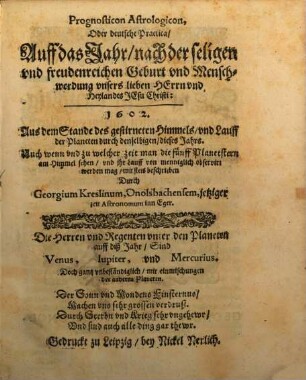 Prognosticon Astrologicon,
Oder deutsche Practica/
Auff das Jahr/ nach der seligen
vnd freudenreichen Geburt vnd Mensch-
werdung vnsers lieben HErrn vnd
Heylandes JEsu Christi:
1602.
Aus dem Stande des gestirneten Himmels/ vnd Lauff
der Planeten durch denselbigen/ dieses Jahrs.
Auch wenn vnd zu welcher zeit man die fünff Planetstern
am Himmel sehen/ vnd ihr lauff von menniglich observirt
werden mag/ mit fleis beschrieben
Durch
Georgium Kreslinum, Onolsbachensem, jetziger
zeit Astronomum zun Eger.
Die Herren vnd Regenten vnter den Planeten
auff diß Jahr/ Sind
Venus, Iupiter, vnd Mercurius.
Doch gantz vnbestendiglich/ mit einmischungen
der anderen Planeten.
Der Sonn vnd Mondens Finsternus/
Machen vns sehr grossen verdruß.
Durch Sterbn vnd Krieg sehr vngehewr/
Vnd sind auch alle ding gar thewr.
Gedruckt zu Leipzig/ bey Nickel Nerlich.